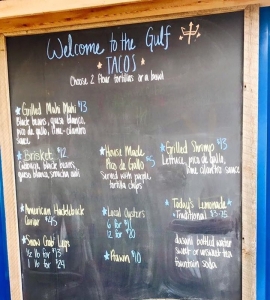 Welcome to the Gulf
TACOS
Choose 2 flour tortillas or a bowl
Grilled Mahi Mahi $13
Black beans, queso blanco,
pico de gallo, lime-cilantro
sauce
Brisket $12
Cabbage, black beans,
queso blanco, sriracha aioli
House Made
Pico de Gallo $5
Served with purple
tortilla chips
Grilled Shrimp $13
Lettuce, pico de gallo,
lime cilantro sauce
American Hackleback
Caviar $45
Snow Crab Legs
1/2 lb for $13
1 lb for $24
Local Oysters
6 for $11
12 for $20
Prawn $10
Today's Lemonade
Traditional $3.25
dasani bottled water
sweet or unsweet tea
fountain soda